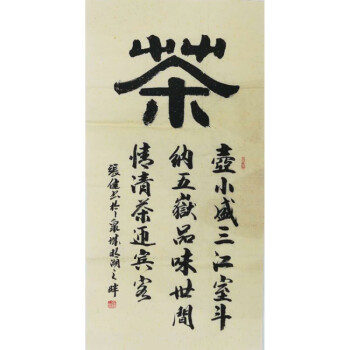 茶
壺小盛三江室斗
納五嶽品味世間
情清茶迎賓客
張健书於泉城明湖之畔